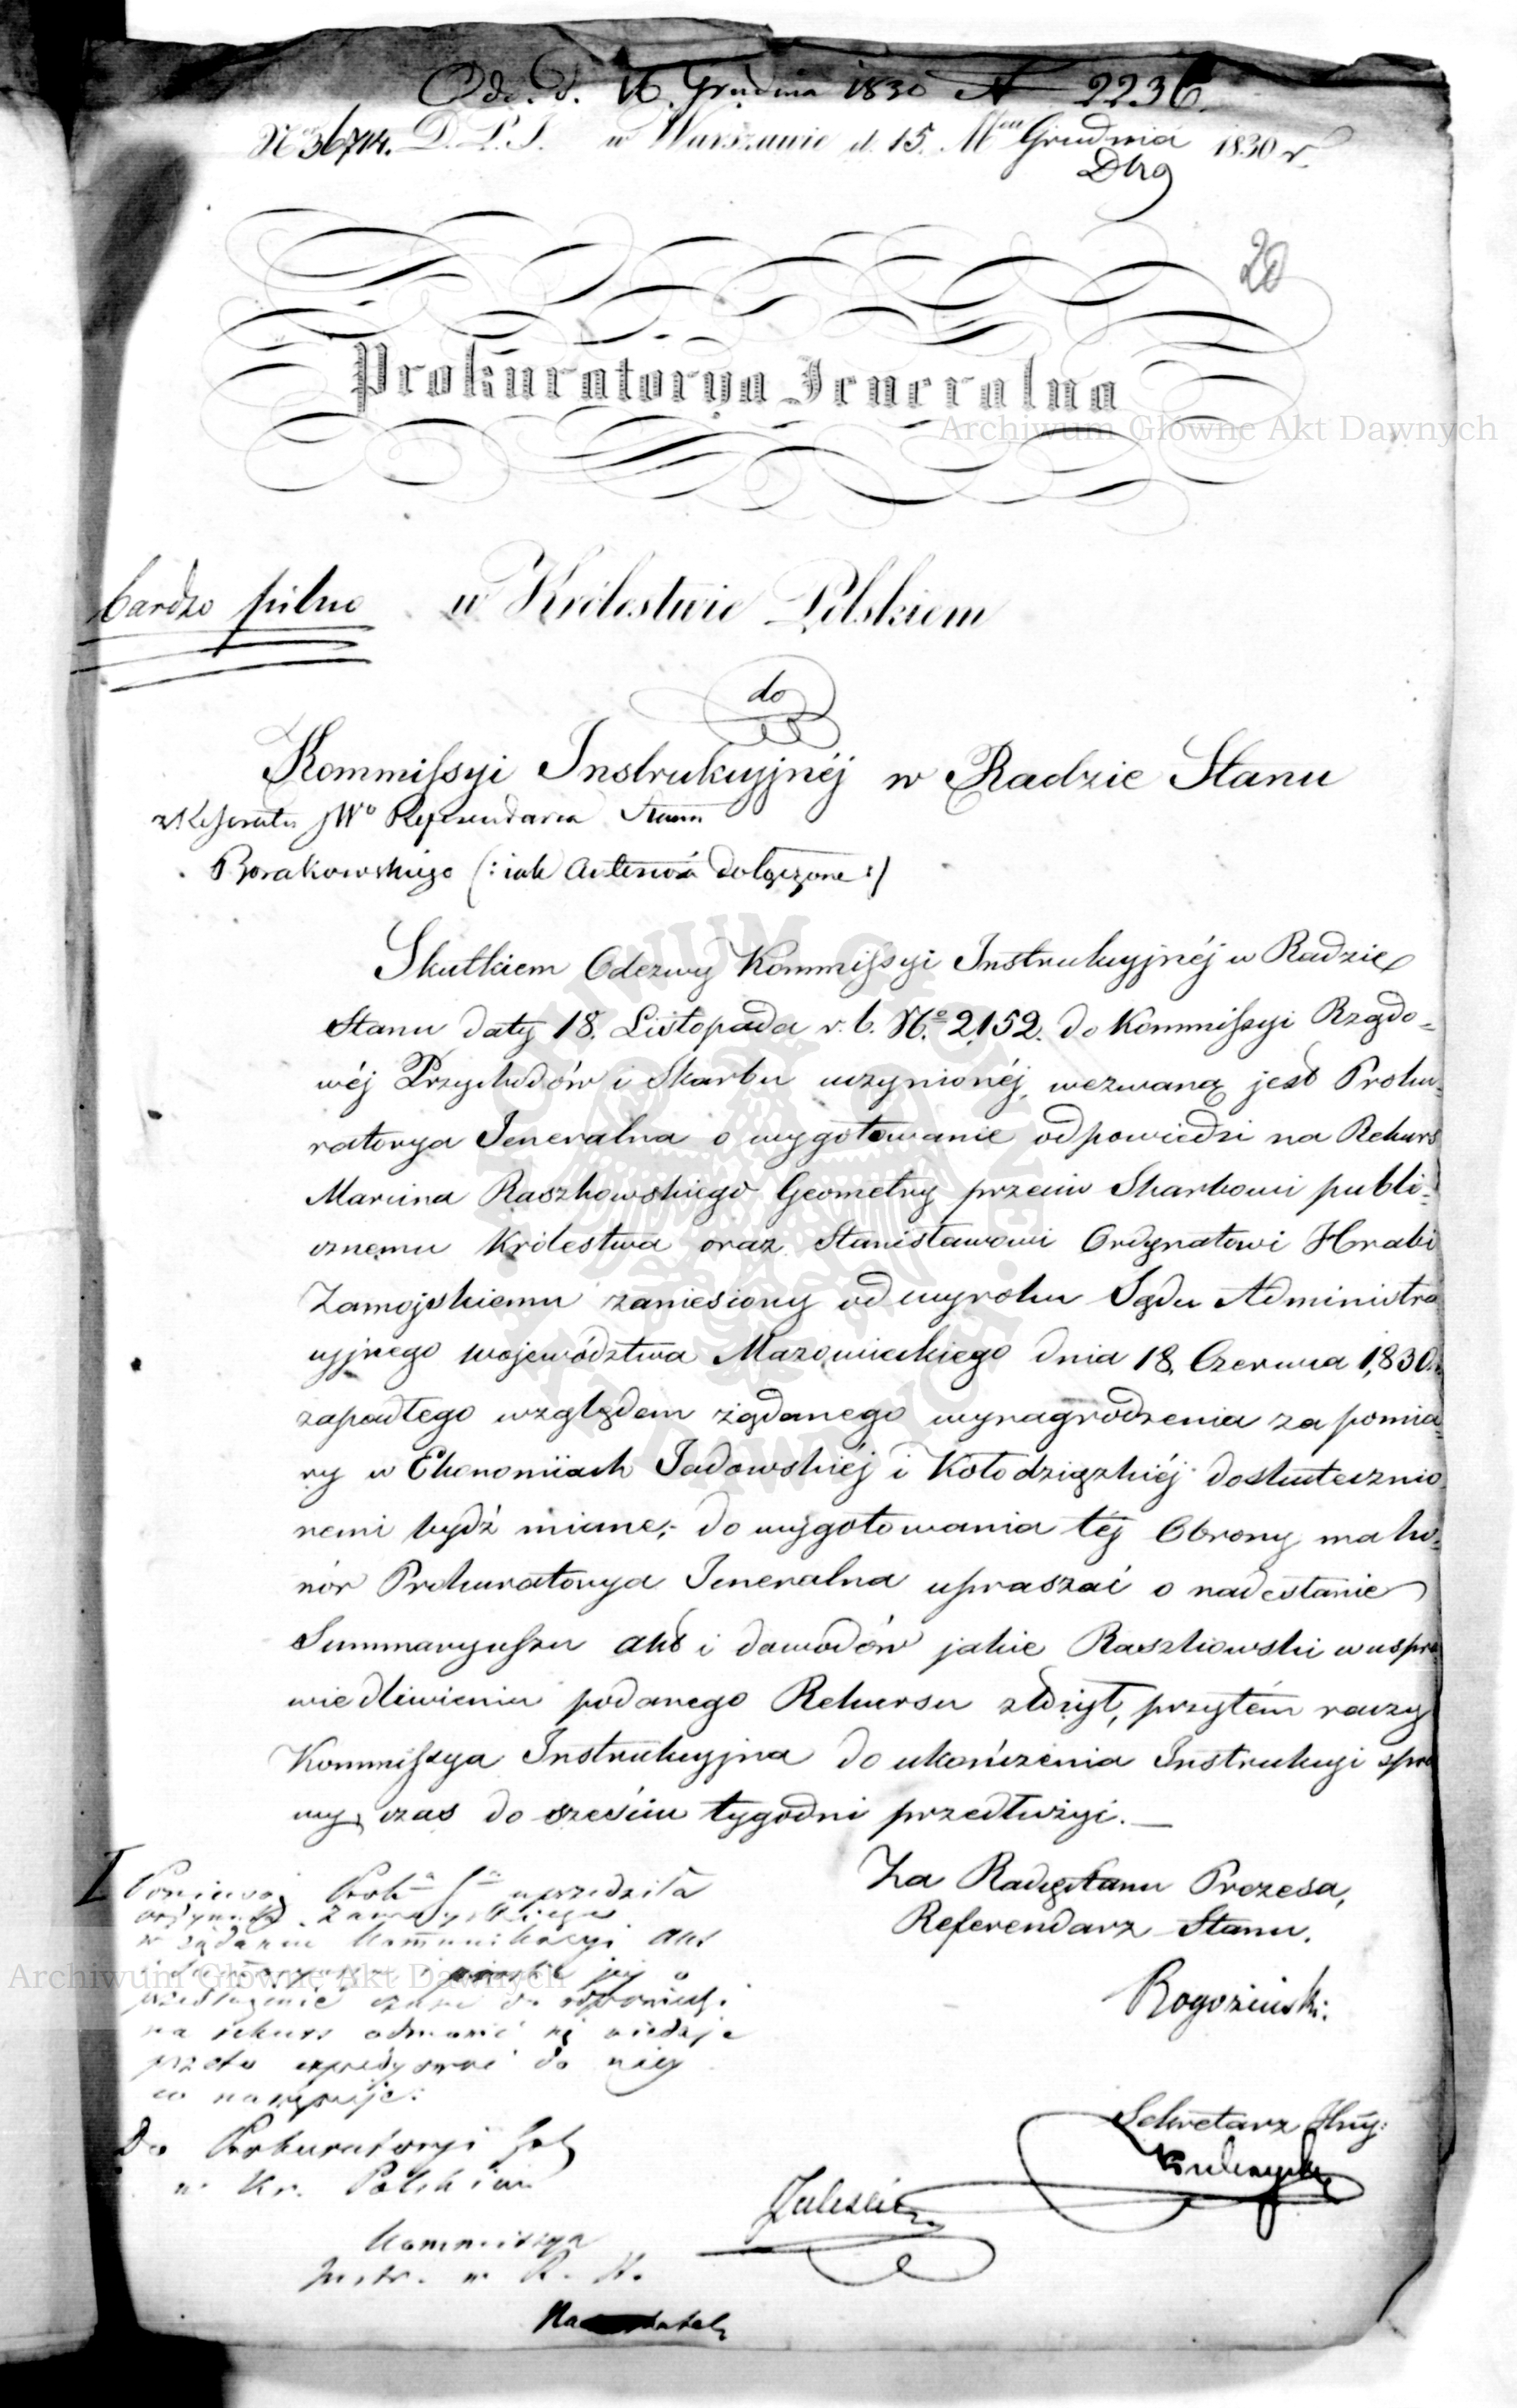 Odd. d. 16. Grudnia 1830 N 2236.
No 36714. D. P. J. w Warszawie d. 15. Mca Grudnia 1830 r.
20
Prokuratorya Jeneralna
Archiwum Główne Akt Dawnych
bardzo pilne w Królestwie Polskiem
do
Kommissyi Instrukcyjnéj w Radzie Stanu
z Referatu JWo Referendarza Stanu
Borakowskiego (: iak Antecessa dołączone :)
Skutkiem Odezwy Kommissyi Instrukcyjnéj w Radzie
Stanu daty 18. Listopada r. b. No. 2152. do Kommissyi Rządo-
wéj Przychodów i Skarbu uczynionéj, wezwaną jest Proku-
ratorya Jeneralna o wygotowanie odpowiedzi na Rekurs
Marcina Raszkowskiego Geometry przeciw Skarbowi publi-
cznemu Królestwa oraz Stanisławowi Ordynatowi Hrabi
Zamojskiemu zaniesiony od wyroku Sądu Administra
cyjnego Województwa Mazowieckiego dnia 18. Czerwca 1830.
zapadłego względem żądanego wynagrodzenia za pomia-
ry w Ekonomiach Jadowskiéj i Kołodziązkiéj doskutecznio
nemi bydź miane; do wygotowania téj Obrony ma ho-
nór Prokuratorya Jeneralna upraszać o nadesłanie
Summaryuszu akt i dowodów jakie Raszkowski w uspra
wiedliwieniu podanego Rekursu złożył, przytém raczy
Kommissya Instrukcyjna do ukończenia Instrukcyi spra
wy, czas do sześciu tygodni przedłużyć.
Za Radcę Stanu Prezesa,
Referendarz Stanu.
Rogoziński.
Ponieważ Prok Jn uprzedziła
ordynata Zamoyskiego
w żądaniu kommunikacyi akt
Archiwum Główne Akt Dawnych
przedłużenie czasu do odpowiedzi
na rekurs odmówić się nie daje
przeto expedyować do niéj
co następuje:
Do Prokuratoryi Jnl
w Kr. Polskiem
Kommissya
Instr. w R. St.
Sekretarz Jlny: